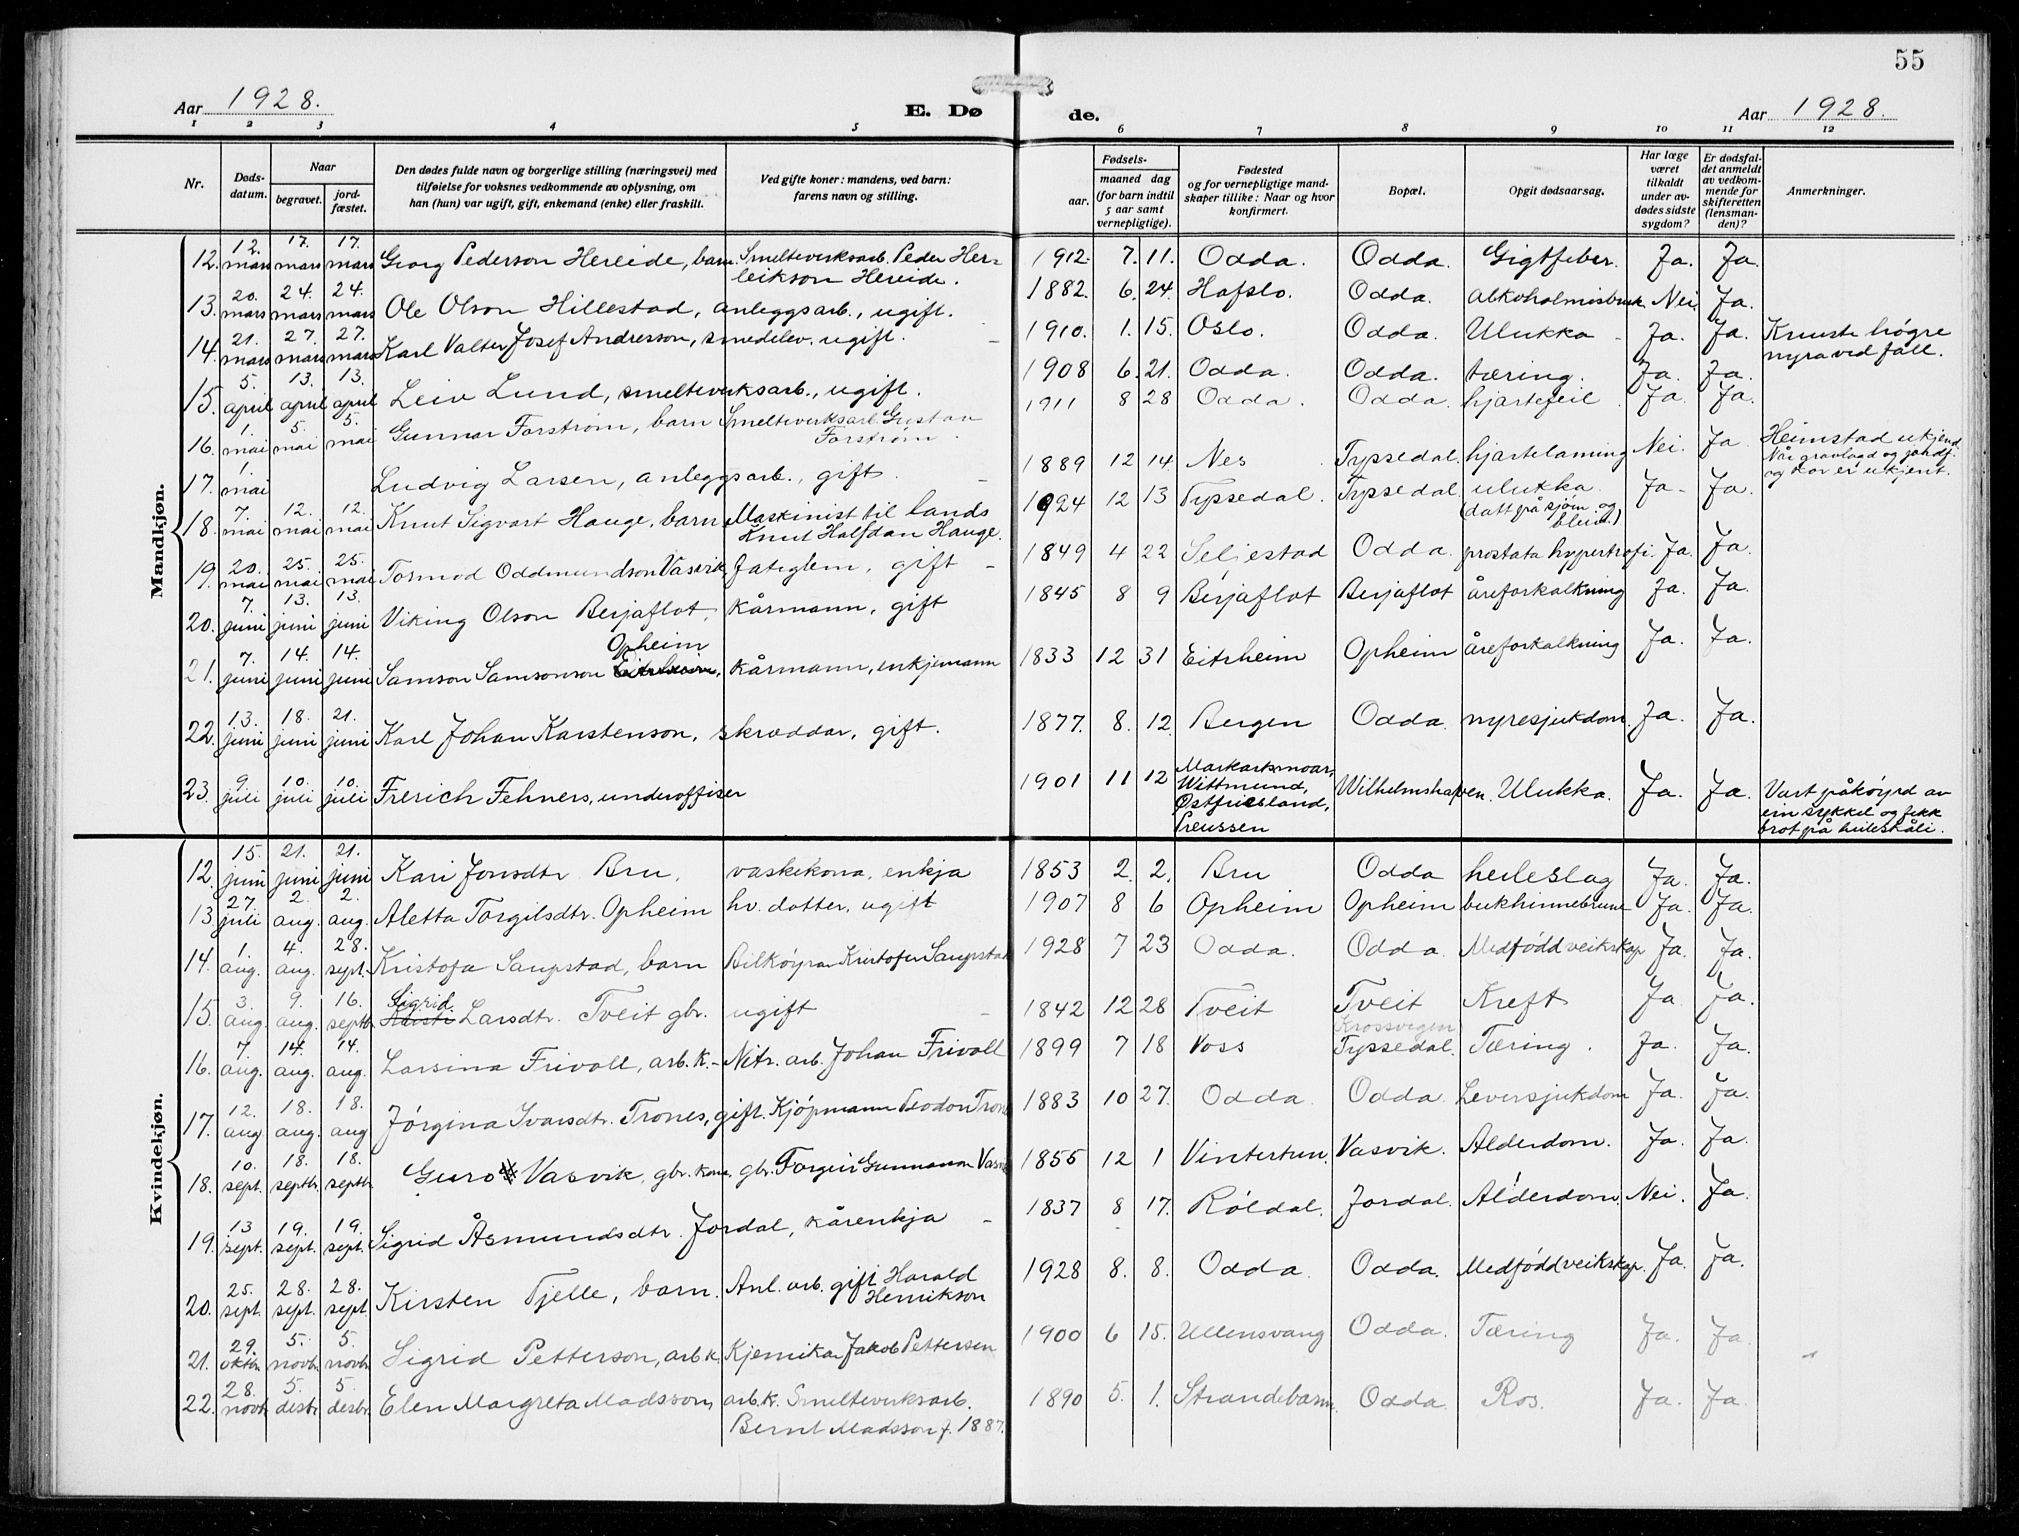 55
Aar 1928.
E. Dø de.
Aar 1928.
1 2 3 4 5 6 7 8 9 10 11 12
Nr.
Døds-datum.
Naar
begravet.
jord-fæstet.
Den dødes fulde navn og borgerlige stilling (næringsvei) med
tilføielse for voksnes vedkommende av oplysning, om
han (hun) var ugift, gift, enkemand (enke) eller fraskilt.
Ved gifte koner: mandens, ved barn:
farens navn og stilling.
Fødsels-
aar.
maaned dag
(for barn indtil
5 aar samt
vernepligtige).
Fødested
og for vernepligtige mand-
skaper tillike: Naar og hvor
konfirmert.
Bopæl.
Opgit dødsaarsag.
Har læge
været
tilkaldt
under av-
dødes sidste
sygdom?
Er dødsfal-
det anmeldt
av vedkom-
mende for
skifteretten
(lensman-
den)?
Anmerkninger.
Mandkjøn.
12. 12. mars 17. mars 17. mars Georg Pederson Hereide, barn. Smelteverksarb. Peder Her-
leikson Hereide. 1912. 7. 11. Odda. Odda. Gigtfeber. Ja. Ja.
13. 20. mars 24. mars 24. mars Ole Olson Hillestad, anleggsarb., ugift. 1882. 6. 24. Hafslo. Odda. alkoholmisbruk Nei. Ja.
14. 21. mars 27. mars 27. mars Karl Valter Josef Andresson, smedelev. ugift. 1910. 1. 15. Oslo. Odda. Ulukka Ja. Ja. Knuste høgre
nyra ved fall.
15. 5. april 13. april 13. april Leiv Lund, smelteverksarb., ugift. 1908 6. 21. Odda. Odda. tæring. Ja. Ja.
16. 1. mai 5. mai 5. mai Gunnar Forstrøm, barn Smelteverksarb. Gustav
Forstrøm. 1911 8 28 Odda. Odda. hjartefeil Ja. Ja.
17. 1. mai Ludvig Larsen, anleggsarb., gift 1889 12 14. Nes Tyssedal. hjartelaming Nei. Ja Heimstad ukjend
Når gravlagd og jordf.
og kor er ukjent.
18. 7. mai 12. mai 12. mai Knut Sigvart Hauge, barn Maskinist til lands
Knut Halfdan Hauge. 1924 12 13 Tyssedal. Tyssedal ulukka
(datt på sjøin og
bleiv) Ja- Ja.
19. 20. mai 25. mai 25. mai Tormod Oddmundson Vasvik, fatiglem, gift 1849 4 22 Seljestad Odda. prostata hypertrofi. Ja. Ja.
20. 7. juni 13. juni 13. juni Viking Olson Berjaflot, kårmann, gift 1845 8 9 Berjaflot Berjaflot åreforkalkning Ja. Ja.
Opheim
21. 7. juni 14. juni 14. juni Samson Samsonson Eitrheim, kårmann, enkjemann 1833 12 31 Eitrheim Opheim åreforkalkning Ja. Ja.
22. 13. juni 18. juni 21. juni Karl Johan Karstenson, skræddar, gift. 1877. 8. 12. Bergen Odda. nyresjukdom. Ja. Ja.
23. 9. juli 10. juli 10. juli Frerich Fehners, underoffiser 1901 11 12 Markartsmoar,
Wittmund,
Østfriesland,
Preussen Wilhelmshaven. Ulukka. Ja. Ja. Vart påkøyrd av
ein sykkel og fekk
brot på heileskåli.
Kvindekjøn.
12. 15. juni 21. juni 21. juni Kari Jonsdtr. Bru, vaskekona, enkja 1853 2. 2. Bru Odda heileslag Ja. Ja.
13 27. juli 2. aug. 2. aug. Aletta Torgilsdtr. Opheim hv. dotter, ugift 1907 8 6 Opheim Opheim bukhinnebrune Ja. Ja.
14. 1. aug. 4. aug. 28. sept. Kristofa Saupstad, barn Bilkøyrar Kristofer Saupstad 1928 7 23 Odda. Odda. Medfødd veikskap Ja. Ja.
Sigrid
15. 3. aug. 9. aug. 16. septbr. Larsdtr. Tveit gbr. ugift 1842 12 28 Tveit Tveit Kreft Ja Ja.
16. 7. aug. 14. aug. 14. aug. Larsina Frivoll, arb. k. - Nitr. arb. Johan Frivoll 1899 7 18 Voss Krossvegen
Tyssedal. Tæring. Ja. Ja.
17. 12. aug 18. aug. 18. aug Jørgina Ivarsdtr. Trones, gift. Kjøpmann Teodor Trones 1883 10 27. Odda. Odda. Leversjukdom Ja. Ja.
18. 10. sept. 18. septbr. 18. septbr. Guro Vasvik, gbr. kona, gbr. Torgeir Gunnarson Vasvik 1855 12 1 Vintertun. Vasvik. Alderdom. Ja. Ja.
19. 13 sept. 19. sept. 19. sept. Sigrid Åsmundsdtr. Jordal, kårenkja 1837 8 17. Røldal. Jordal. Alderdom. Nei. Ja.
20. 25. sept. 28. sept. 28. sept. Kirsten Tjelle, barn. Anl. arb. gift Harald
Henrikson 1928 8. 8. Odda. Odda. Medfødd veikskap. Ja. Ja.
21. 29. oktbr. 5. novbr. 5. novbr. Sigrid Petterson, arb. k. Kjemikar Jakob Pettersen 1900 6 15. Ullensvang Odda. Tæring Ja. Ja.
22. 28. novbr. 5. desbr. 5. desbr. Elen Margreta Madsson, arb. k. Smelteverksarb.
Bernt Madsson f. 1887. 1890 5. 1. Strandebarm. Odda. Ros. Ja. Ja.